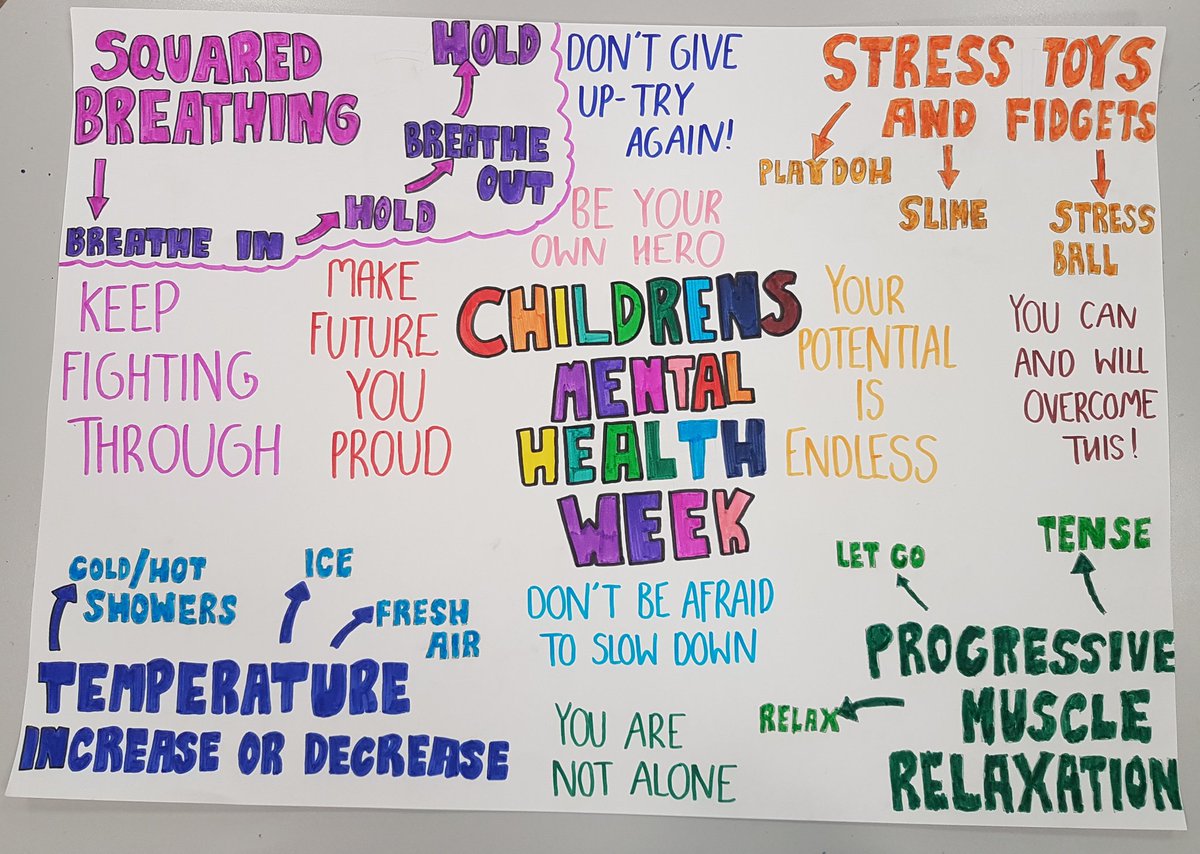 SQUARED
BREATHING
BREATHE IN
HOLD
BREATHE
OUT
HOLD
DON'T GIVE
UP-TRY
AGAIN!
STRESS TOYS
AND FIDGETS
PLAYDOH
SLIME
STRESS
BALL
BE YOUR
OWN HERO
KEEP
FIGHTING
THROUGH
MAKE
FUTURE
YOU
PROUD
CHILDRENS
MENTAL
HEALTH
WEEK
YOUR
POTENTIAL
IS
ENDLESS
YOU CAN
AND WILL
OVERCOME
THIS!
COLD/HOT
SHOWERS
ICE
FRESH
AIR
TEMPERATURE
INCREASE OR DECREASE
DON'T BE AFRAID
TO SLOW DOWN
YOU ARE
NOT ALONE
LET GO
TENSE
RELAX
PROGRESSIVE
MUSCLE
RELAXATION